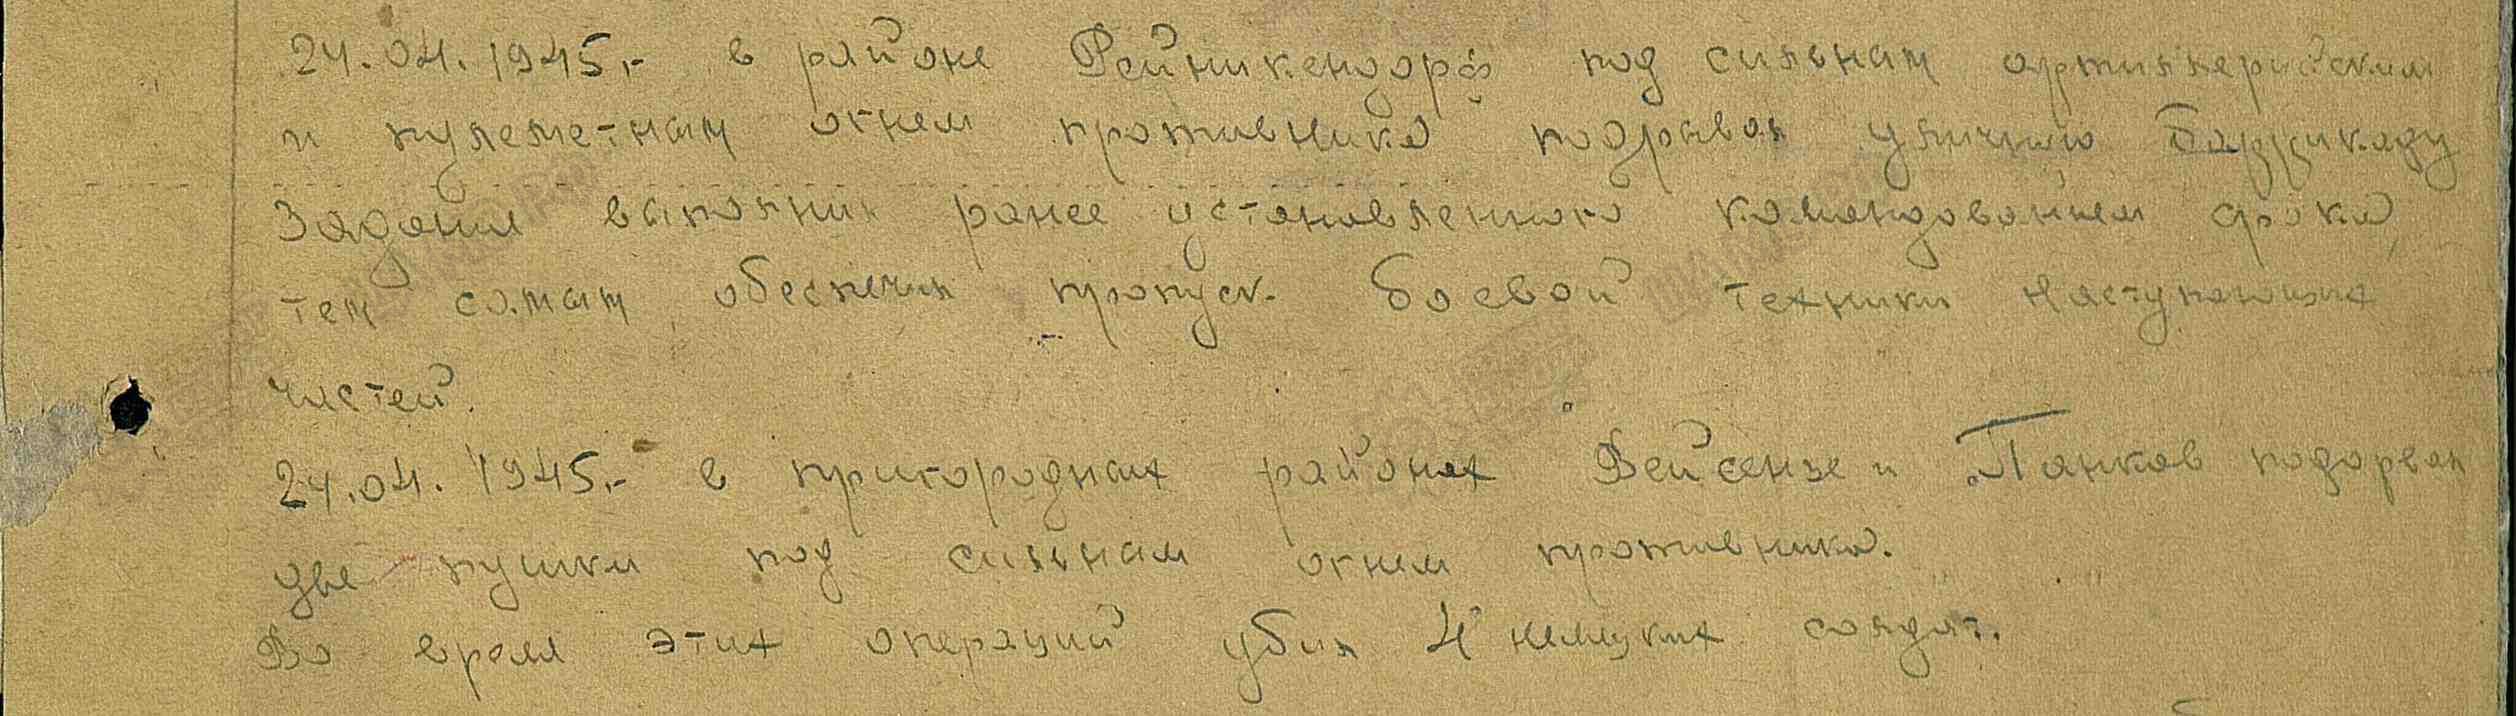 24.04.1945.- в районе Рейникендорф под сильным артиллерийским
и пулеметным огнем противника подрывал уличную баррикаду
Задания выполнил ранее установленного командованием срока,
тем самым обеспечил пропуск боевой техники наступающих
частей.
24.04.1945.- в пригородных районах Вейсензе и Панков подорвал
две пушки под сильным огнем противника.
Во время этих операций убил 4 немецких солдат.